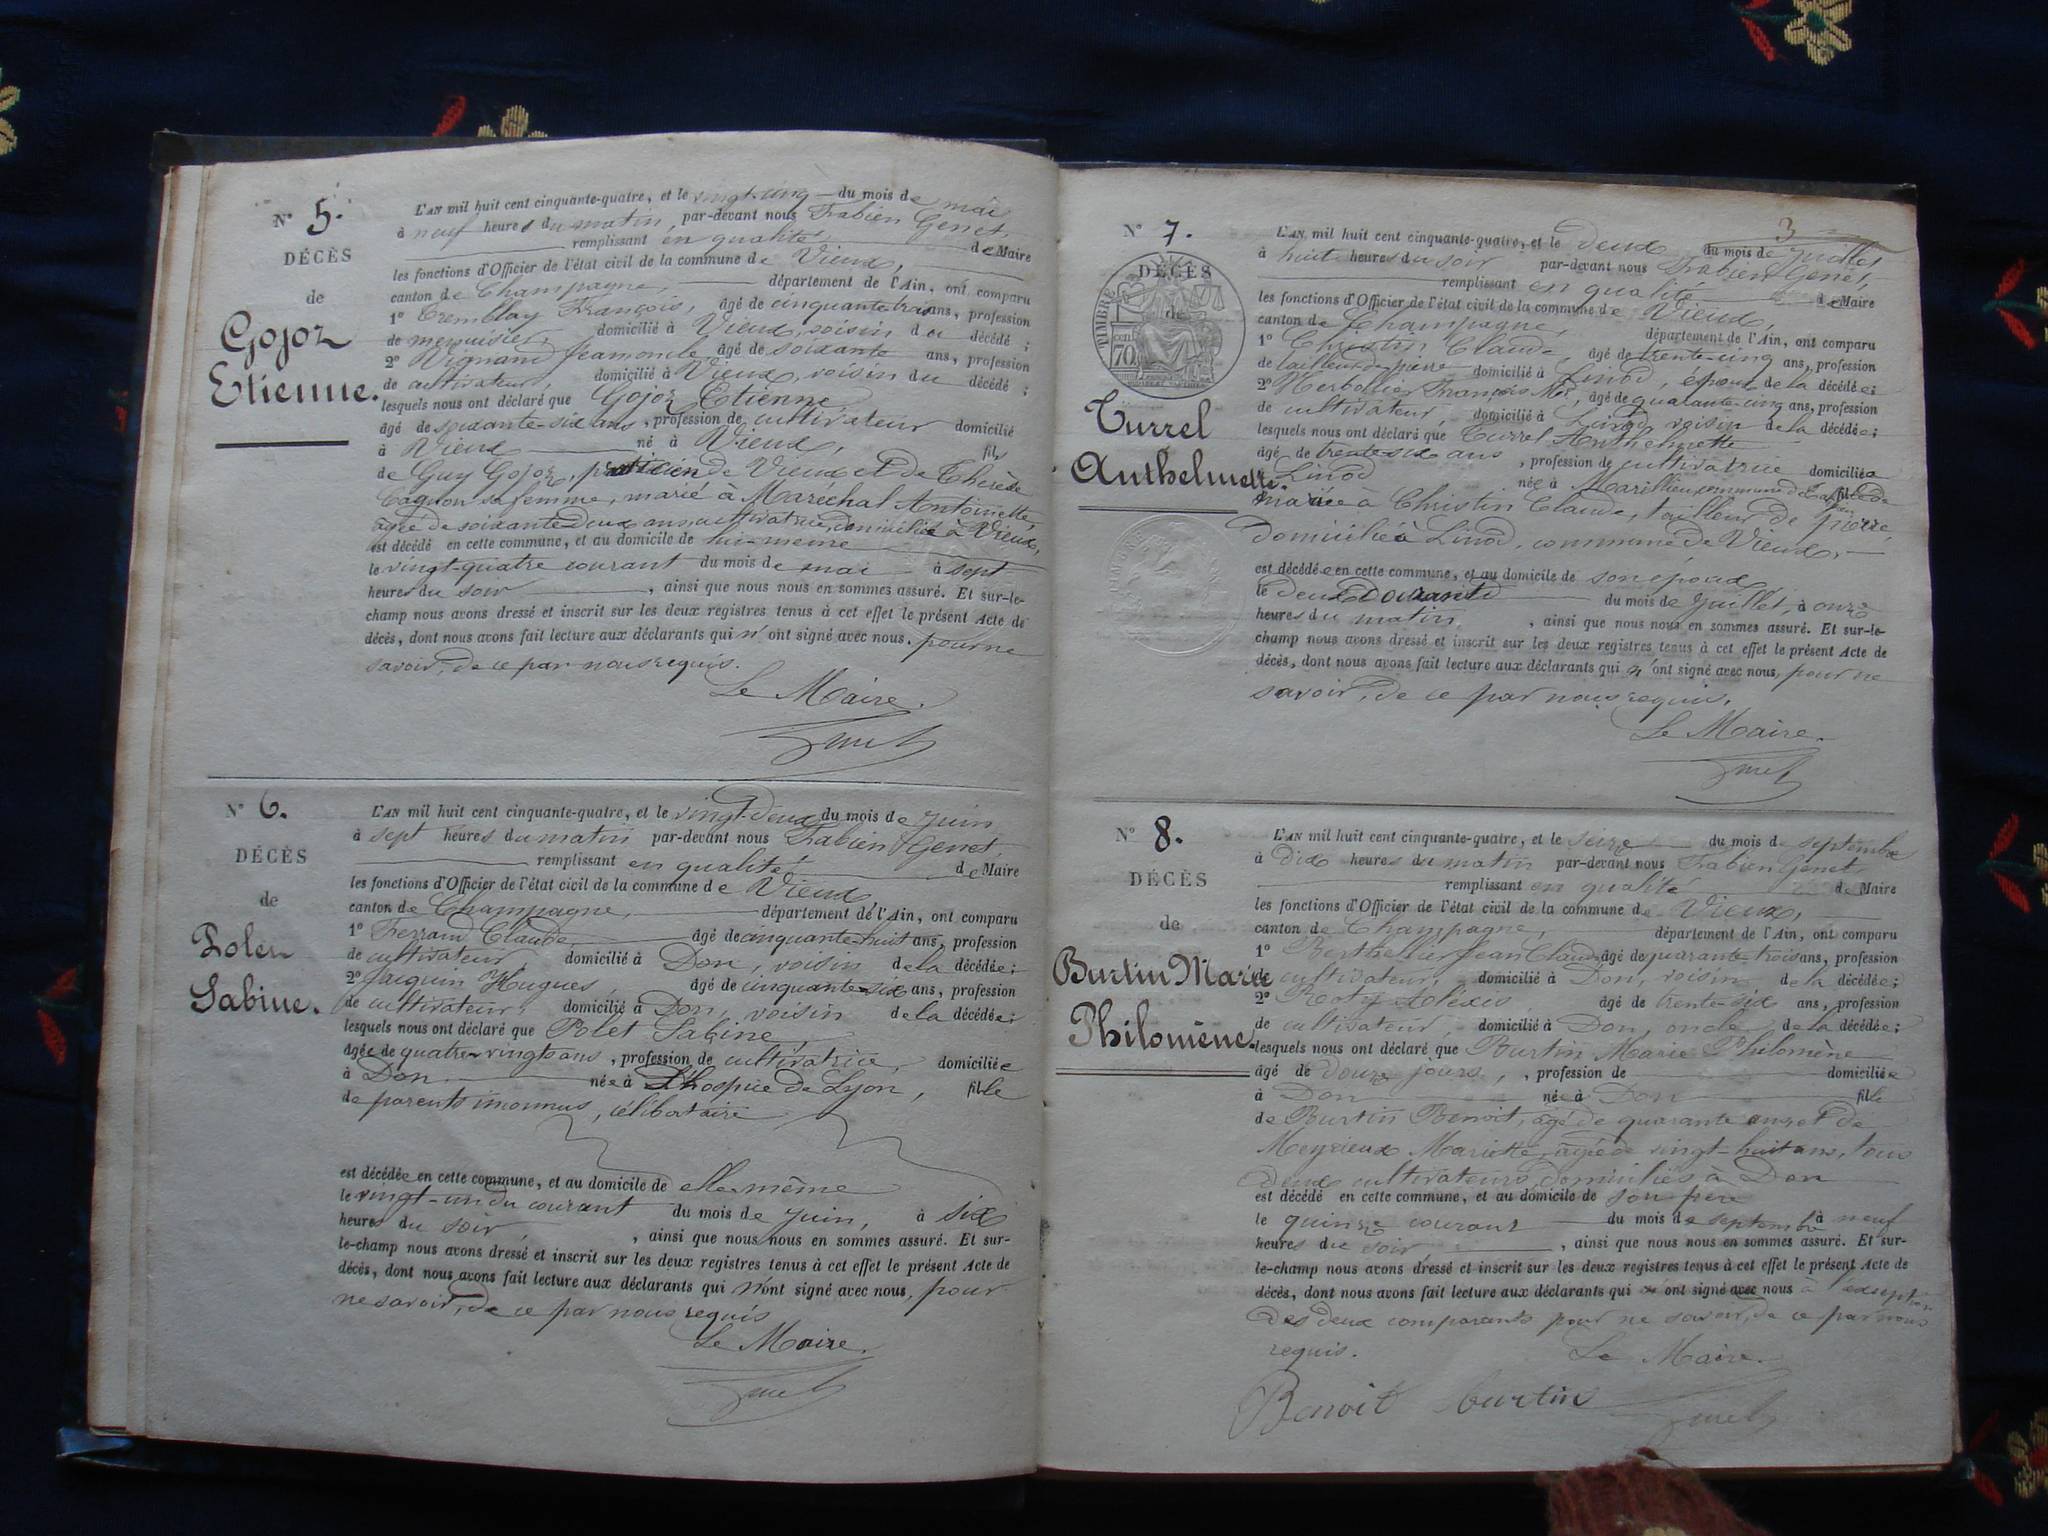 N° 5.
DÉCÈS
de
Gojoz
Etienne.
L'AN mil huit cent cinquante-quatre, et le vingt-cinq du mois de mai
à neuf heures du matin, par-devant nous Fabien Genet,
remplissant en qualité de Maire
les fonctions d'Officier de l'état civil de la commune de Vieux,
canton de Champagne, département de l'Ain, ont comparu
1° Tremblay François, âgé de cinquante trois ans, profession
de menuisier, domicilié à Vieux, voisin du décédé ;
2° âgé de soixante ans, profession
de cultivateur, domicilié à Vieux, voisin du décédé ;
lesquels nous ont déclaré que Gojoz Etienne
âgé de soixante-six ans, profession de cultivateur domicilié
à Vieux né à Vieux, fils
de Guy Gojoz, praticien de Vieux et de Thérèse
sa femme, marié à Marechal Antoinette,
agée de soixante deux ans, cultivatrice, domiciliée à Vieux,
est décédé en cette commune, et au domicile de lui-même
le vingt-quatre courant du mois de mai à sept
heures du soir, ainsi que nous nous en sommes assuré. Et sur-le-
champ nous avons dressé et inscrit sur les deux registres tenus à cet effet le présent Acte de
décès, dont nous avons fait lecture aux déclarants qui n'ont signé avec nous. pour ne
savoir, de ce par nous requis.
Le Maire.
Genet
N° 6.
DÉCÈS
de
Polet
Sabine.
L'AN mil huit cent cinquante-quatre, et le vingt-deux du mois de juin
à sept heures du matin par-devant nous Fabien Genet,
remplissant en qualité de Maire
les fonctions d'Officier de l'état civil de la commune de Vieux,
canton de Champagne, département de l'Ain, ont comparu
1° Ferrand Claude, âgé de cinquante-huit ans, profession
de cultivateur, domicilié à Don, voisin de la décédée ;
2° Jacquin Hugues, âgé de cinquante-six ans, profession
de cultivateur, domicilié à Don, voisin de la décédée ;
lesquels nous ont déclaré que Polet Sabine,
âgée de quatre-vingts ans, profession de cultivatrice, domiciliée
à Don née à l'hospice de Lyon, fille
de parents inconnus, célibataire
est décédée en cette commune, et au domicile de elle-même
le vingt-un du courant du mois de juin, à six
heures du soir, ainsi que nous nous en sommes assuré. Et sur-
le-champ nous avons dressé et inscrit sur les deux registres tenus à cet effet le présent Acte de
décès, dont nous avons fait lecture aux déclarants qui n'ont signé avec nous, pour
ne savoir, de ce par nous requis
Le Maire.
Genet
3
N° 7.
DÉCÈS
de
TIMBRE
70
Turrel
Anthelmette.
L'AN mil huit cent cinquante-quatre, et le deux du mois de juillet
à huit heures du soir par-devant nous Fabien Genet,
remplissant en qualité de Maire
les fonctions d'Officier de l'état civil de la commune de Vieux,
canton de Champagne, département de l'Ain, ont comparu
1° Christin Claude, âgé de trente-cinq ans, profession
de tailleur de pierre domicilié à Linod, époux de la décédée ;
2° François âgé de quarante-cinq ans, profession
de cultivateur domicilié à Linod voisin de la décédée ;
lesquels nous ont déclaré que Turrel Anthelmette
âgée de trente-six ans, profession de cultivatrice domiciliée
à Linod née à commune de fille de
mariée à Christin Claude, tailleur de pierre,
domicilié à Linod, commune de Vieux,
est décédée en cette commune, et au domicile de son époux
le deux courant du mois de juillet, à onze
heures du matin, ainsi que nous nous en sommes assuré. Et sur-le-
champ nous avons dressé et inscrit sur les deux registres tenus à cet effet le présent Acte de
décès, dont nous avons fait lecture aux déclarants qui n'ont signé avec nous, pour ne
savoir, de ce par nous requis,
Le Maire.
Genet
N° 8.
DÉCÈS
de
Burtin Marie
Philomène.
L'AN mil huit cent cinquante-quatre, et le seize du mois de septembre
à dix heures du matin par-devant nous Fabien Genet,
remplissant en qualité de Maire
les fonctions d'Officier de l'état civil de la commune de Vieux,
canton de Champagne, département de l'Ain, ont comparu
1° Berthellier Jean Claude âgé de quarante trois ans, profession
de cultivateur, domicilié à Don, voisin de la décédée ;
2° Roty Alexis âgé de trente-six ans, profession
de cultivateur, domicilié à Don, oncle de la décédée ;
lesquels nous ont déclaré que Burtin Marie Philomène
âgé de douze jours, profession de domiciliée
à Don née à Don fille
de Burtin Benoit, agé de quarante ans et de
Meyrieux Mariette, agée de vingt-huit ans, tous
deux cultivateurs, domiciliés à Don
est décédé en cette commune, et au domicile de son père
le quinze courant du mois de septembre à neuf
heures du soir, ainsi que nous nous en sommes assuré. Et sur-
le-champ nous avons dressé et inscrit sur les deux registres tenus à cet effet le présent Acte de
décès, dont nous avons fait lecture aux déclarants qui ont signé avec nous à l'exception
des deux comparants pour ne savoir, de ce par nous
requis.
Le Maire.
Benoit burtin
Genet